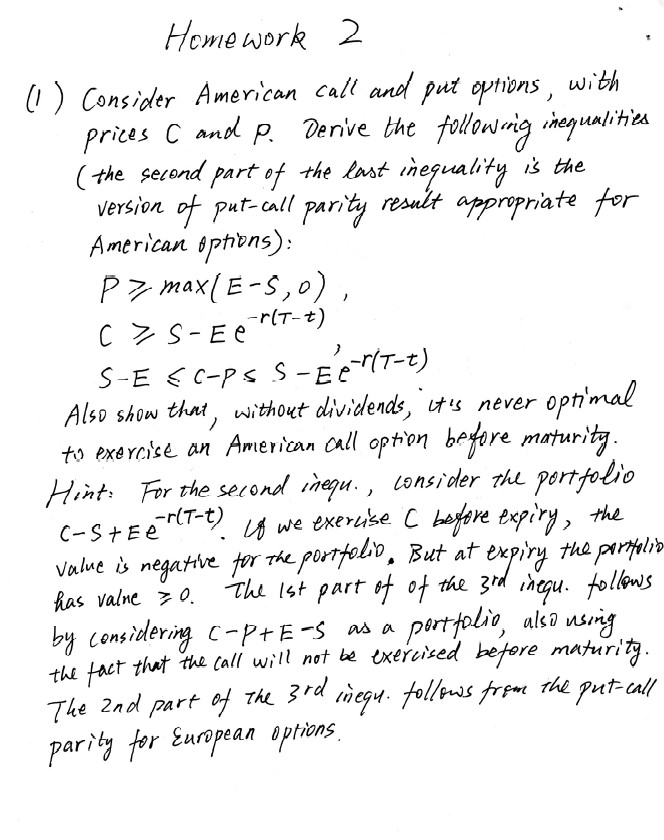 Homework 2
(1) Consider American call and put options, with
prices C and P. Derive the following inequalities
(the second part of the last inequality is the
version of put-call parity result appropriate for
American options):
P ≥ max(E-S, 0),
C ≥ S - Ee^{-r(T-t)},
S-E ≤ C-P ≤ S - Ee^{-r(T-t)}
Also show that, without dividends, it's never optimal
to exercise an American call option before maturity.
Hint: For the second inequ., consider the portfolio
C-S+Ee^{-r(T-t)}. If we exercise C before expiry, the
value is negative for the portfolio. But at expiry the portfolio
has value ≥ 0. The 1st part of of the 3rd inequ. follows
by considering C-P+E-S as a portfolio, also using
the fact that the call will not be exercised before maturity.
The 2nd part of the 3rd inequ. follows from the put-call
parity for European options.